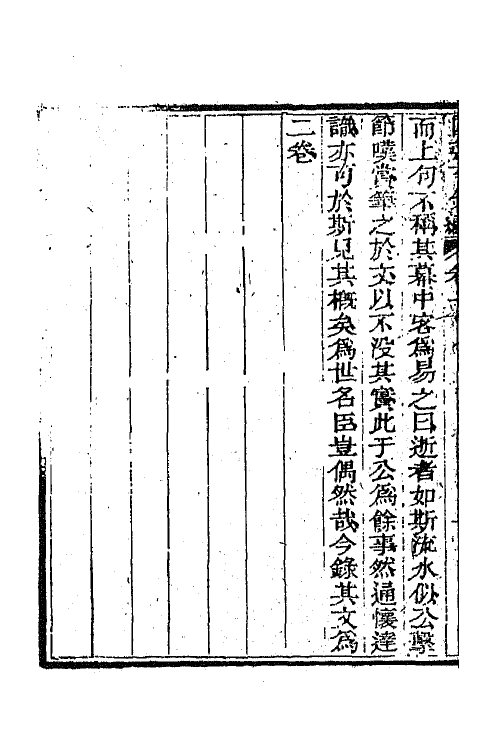 而上句不稱其幕中客爲易之曰逝者如斯流水似公擊
節嘆賞筆之於文以不没其實此于公爲餘事然通懷達
識亦可於斯見其概矣爲世名臣豈偶然哉今錄其文爲
二卷